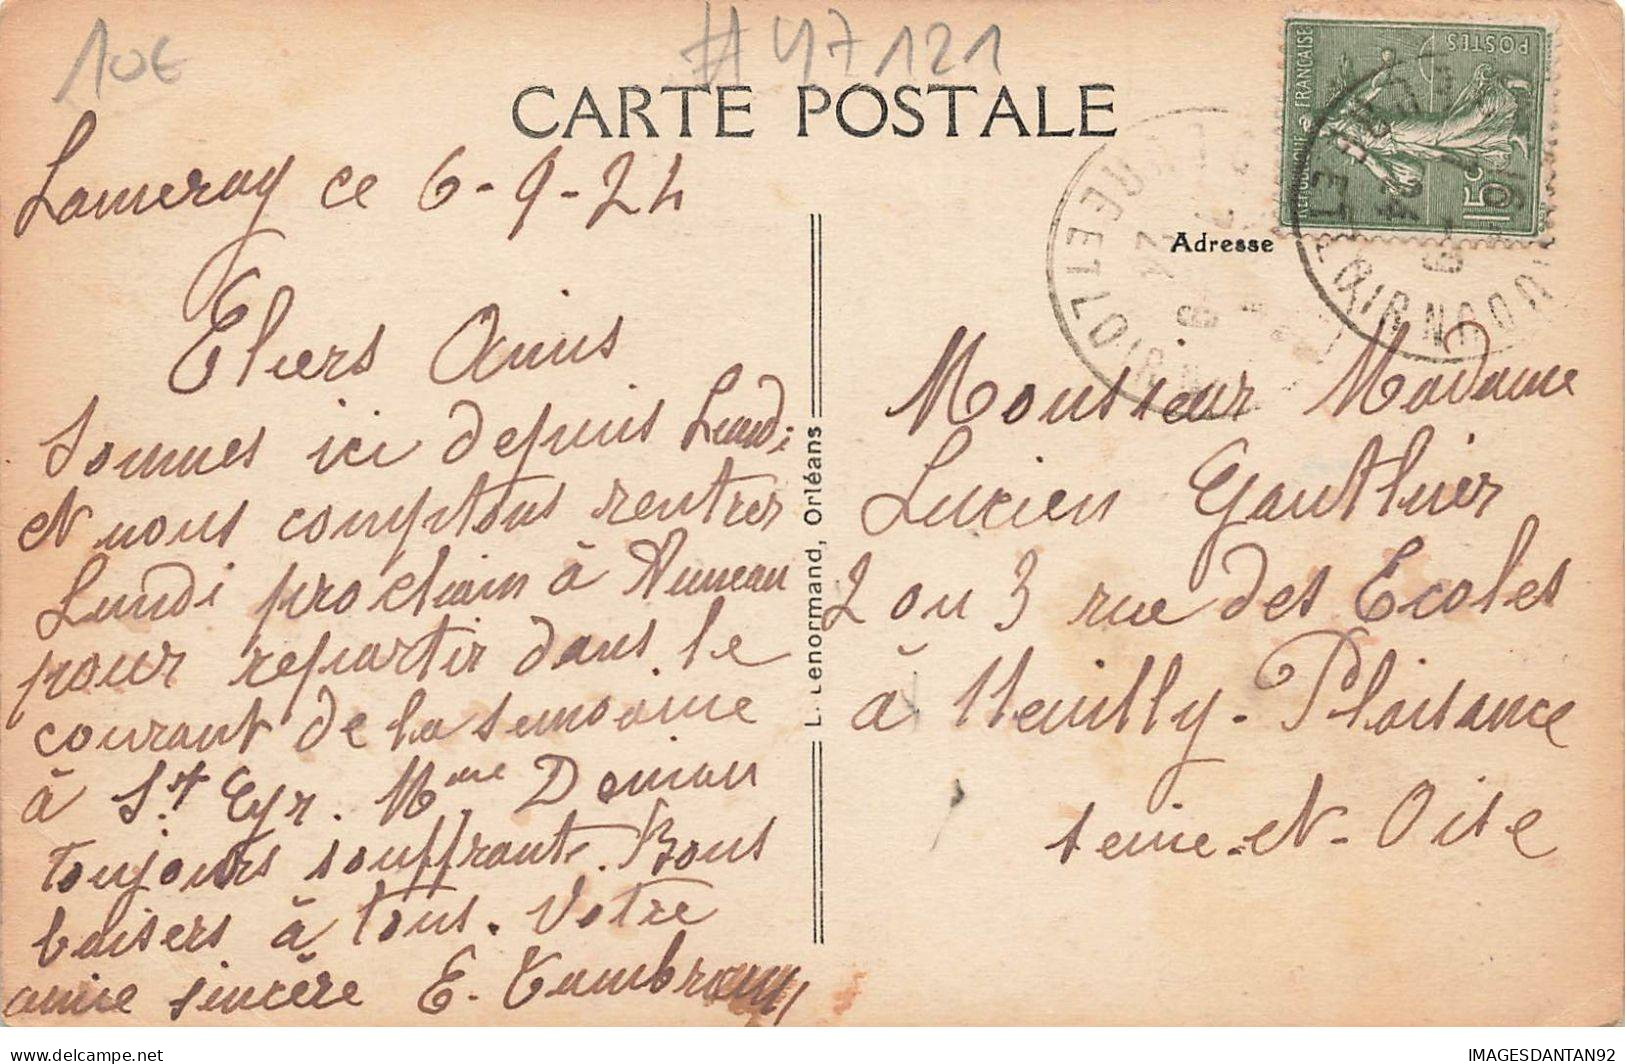 10€
#47121
CARTE POSTALE
Lameray ce 6-9-24
Chers Amis
Sommes ici depuis Lundi
et nous comptons rentrer
Lundi prochain à Auneau
pour repartir dans le
courant de la semaine
à St Cyr. Mme Doman
toujours souffrante. Bons
baisers à tous. Votre
amie sincère E.
L. Lenormand, Orléans
POSTES
REPUBLIQUE FRANCAISE
15c
Adresse
Monsieur Madame
Lucien Gauthier
2 ou 3 rue des Ecoles
à Neuilly-Plaisance
Seine-et-Oise
EURE ET LOIR
delcampe.net
IMAGESDANTAN92